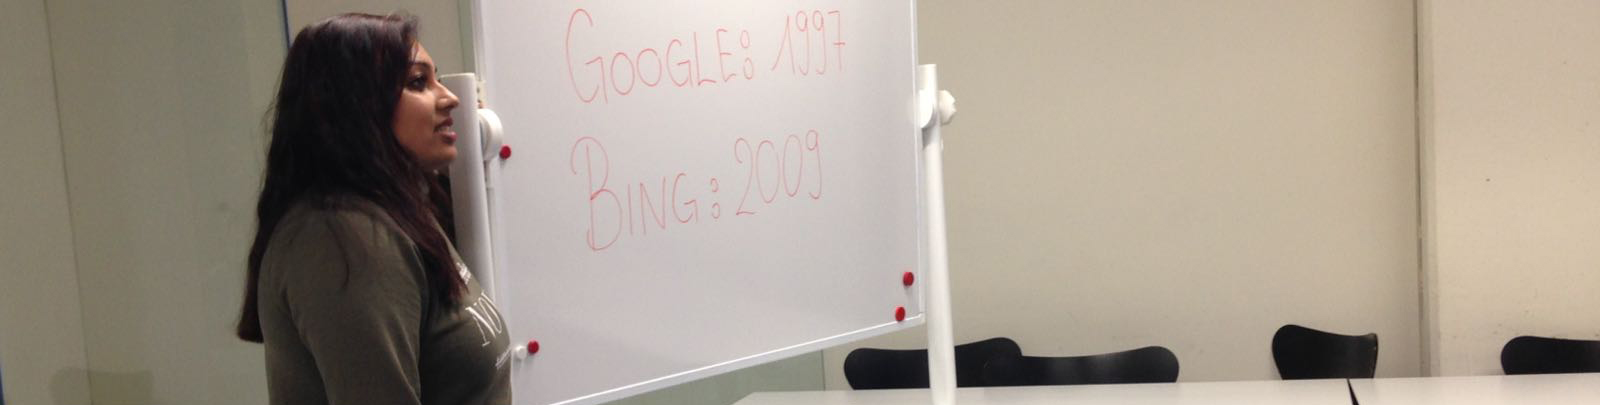 GOOGLE: 1997
BING: 2009